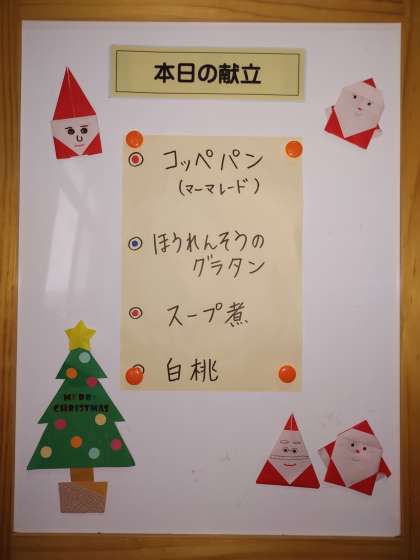 本日の献立
コッペパン
(マーマレード)
ほうれんそうの
グラタン
スープ煮
白桃
MERRY
CHRISTMAS